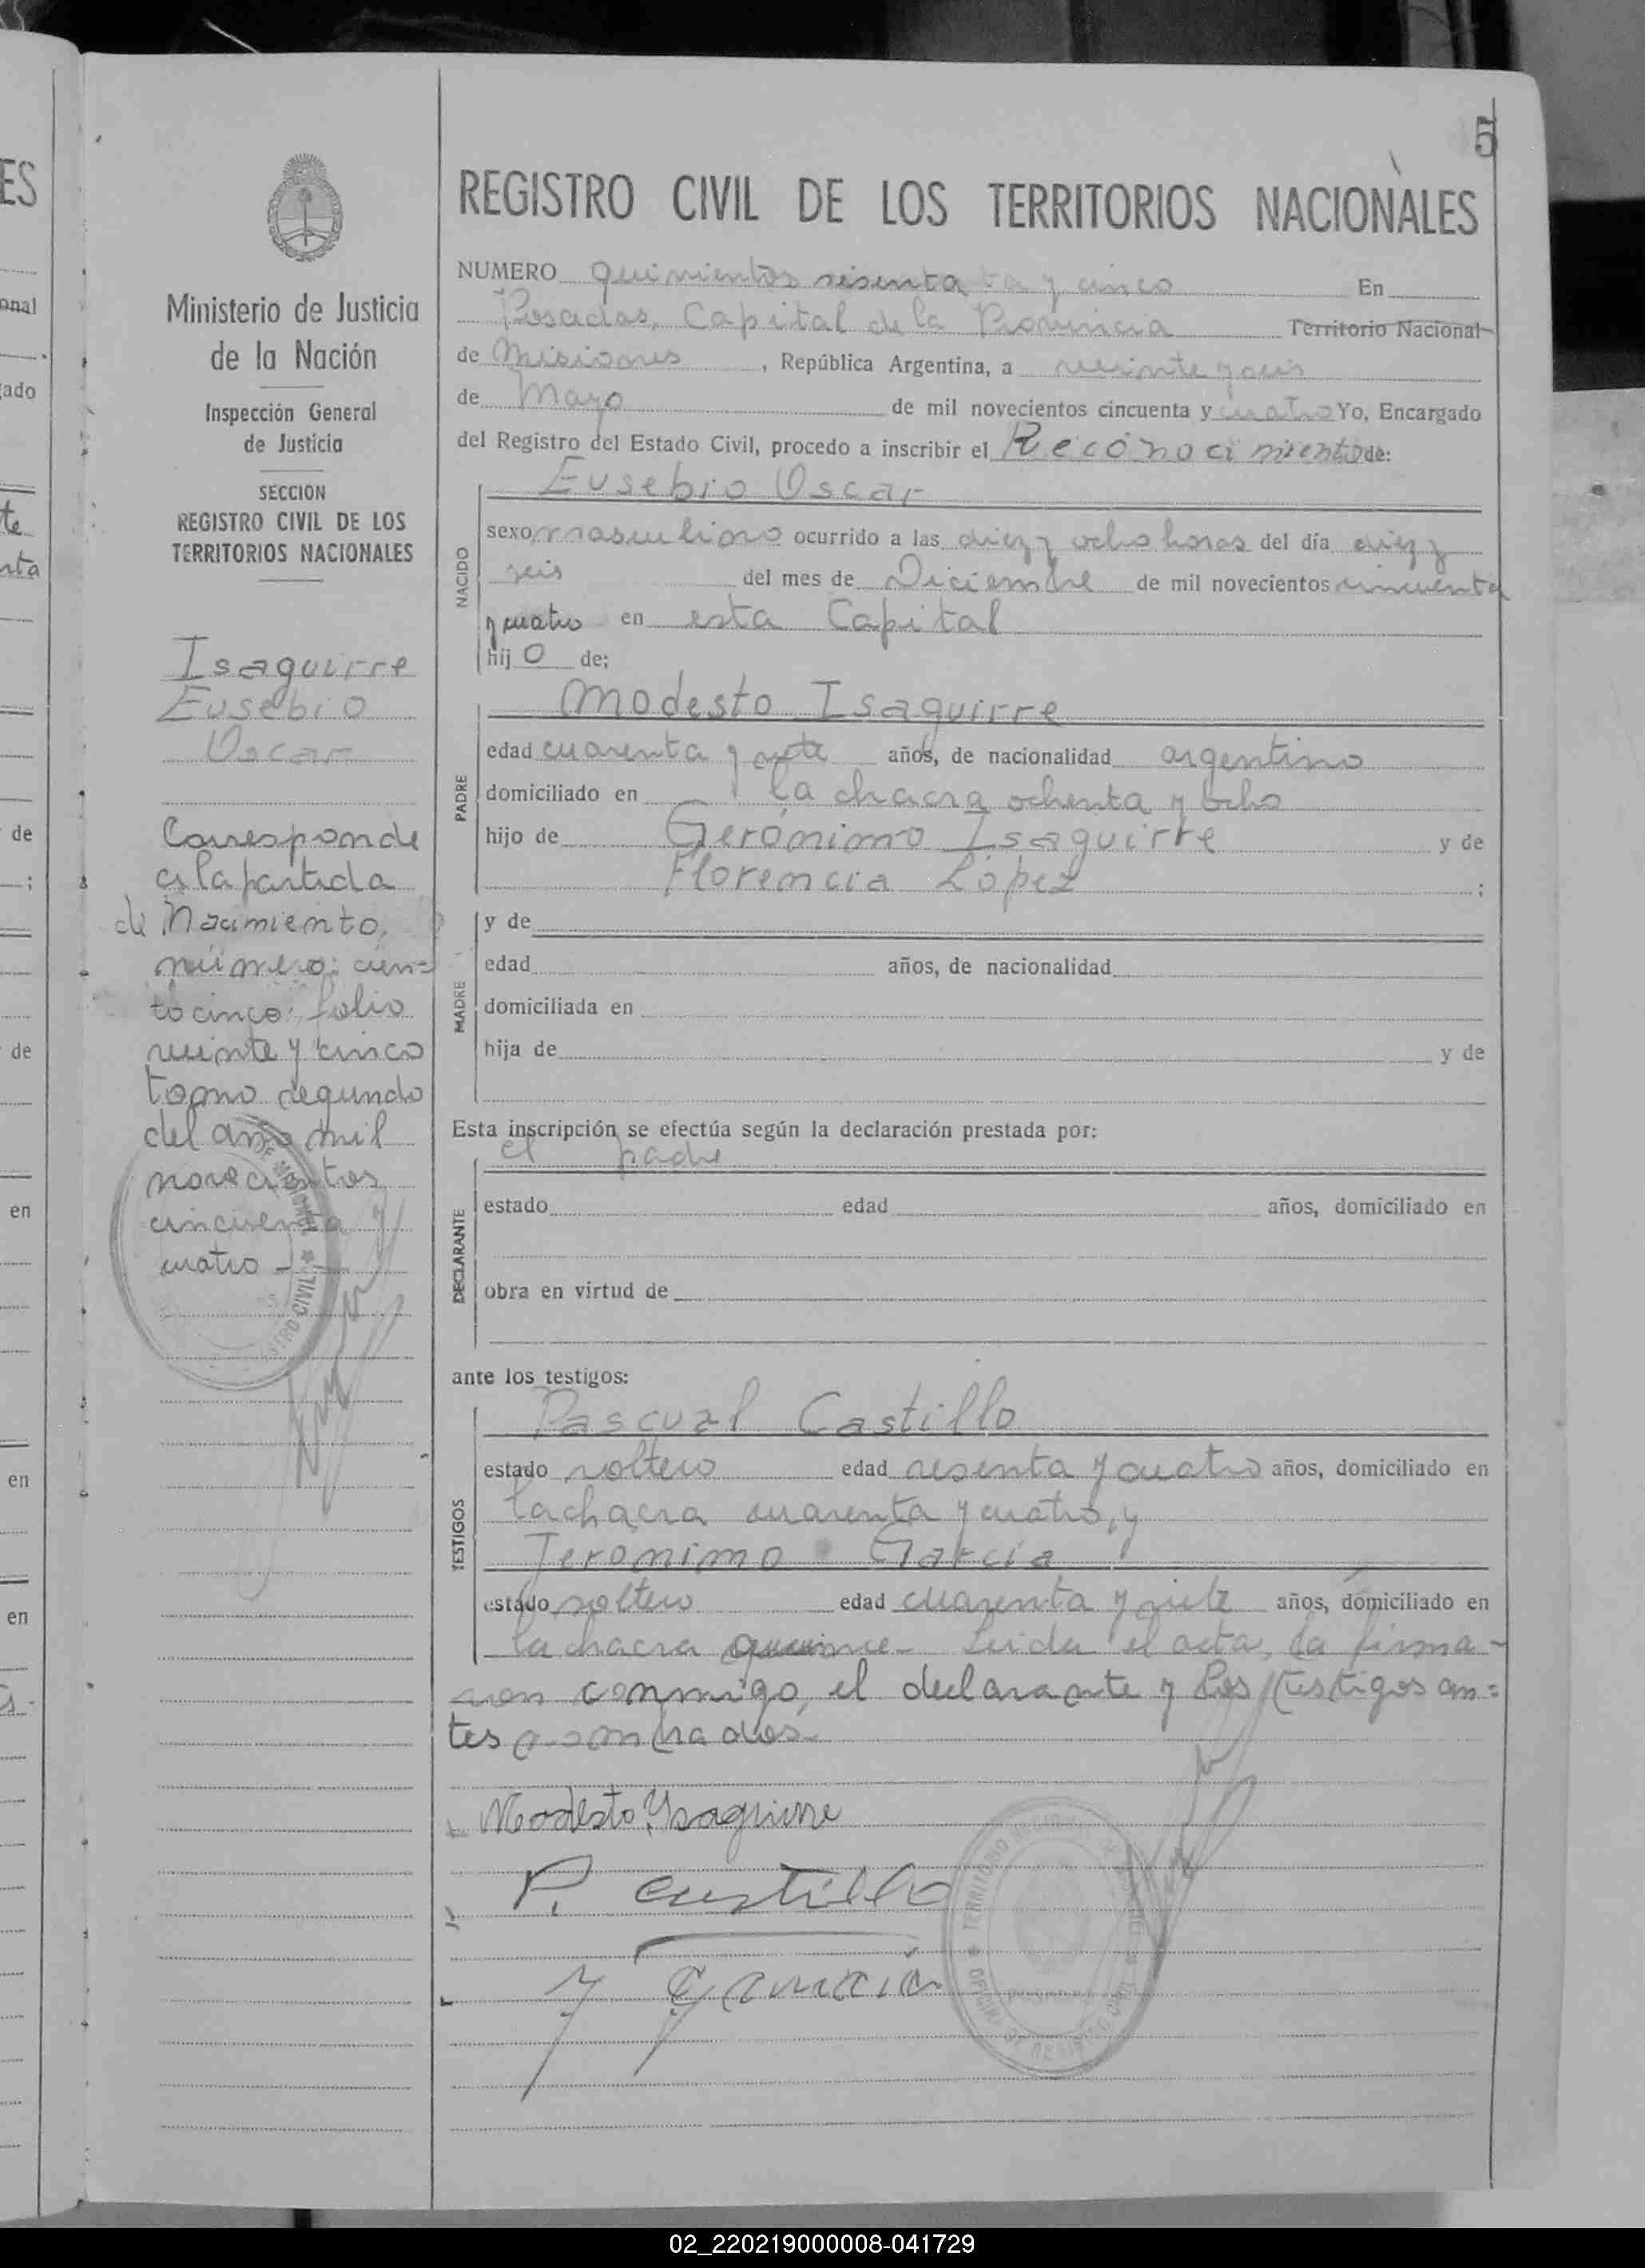 5
REGISTRO CIVIL DE LOS TERRITORIOS NACIONALES
NUMERO quinientos sesenta y cinco En
Posadas, Capital de la Provincia Territorio Nacional
de Misiones, República Argentina, a veinte y seis
de Mayo de mil novecientos cincuenta y cuatro Yo, Encargado
del Registro del Estado Civil, procedo a inscribir el Reconocimiento de:
Eusebio Oscar
NACIDO
sexo masculino ocurrido a las diez y ocho horas del día diez y
seis del mes de Diciembre de mil novecientos cincuenta
y cuatro en esta Capital
hijo de;
PADRE
Modesto Isaguirre
edad cuarenta y siete años, de nacionalidad argentino
domiciliado en la chacra ochenta y ocho
hijo de Gerónimo Isaguirre y de
Florencia López ;
MADRE
y de
edad años, de nacionalidad
domiciliada en
hija de y de
Esta inscripción se efectúa según la declaración prestada por:
el padre
DECLARANTE
estado edad años, domiciliado en
obra en virtud de
ante los testigos:
TESTIGOS
Pascual Castillo
estado soltero edad sesenta y cuatro años, domiciliado en
la chacra cuarenta y cuatro, y
Jeronimo Garcia
estado soltero edad cuarenta y siete años, domiciliado en
la chacra quince- Leida el acta, la firma-
ron conmigo, el declarante y los testigos an=
tes nombrados-
Modesto Ysaguirre
P. Castillo
J Garcia
TERRITORIO
OFICINA DE REGISTRO CIVIL
Ministerio de Justicia
de la Nación
Inspección General
de Justicia
SECCION
REGISTRO CIVIL DE LOS
TERRITORIOS NACIONALES
Isaguirre
Eusebio
Oscar
Corresponde
a la partida
de Nacimiento,
número: cien=
to cinco: folio
veinte y cinco
tomo segundo
del año mil
novecientos
cincuenta y
cuatro -
CIVIL
ES
onal
gado
te
nta
de
de
en
en
en
02_220219000008-041729